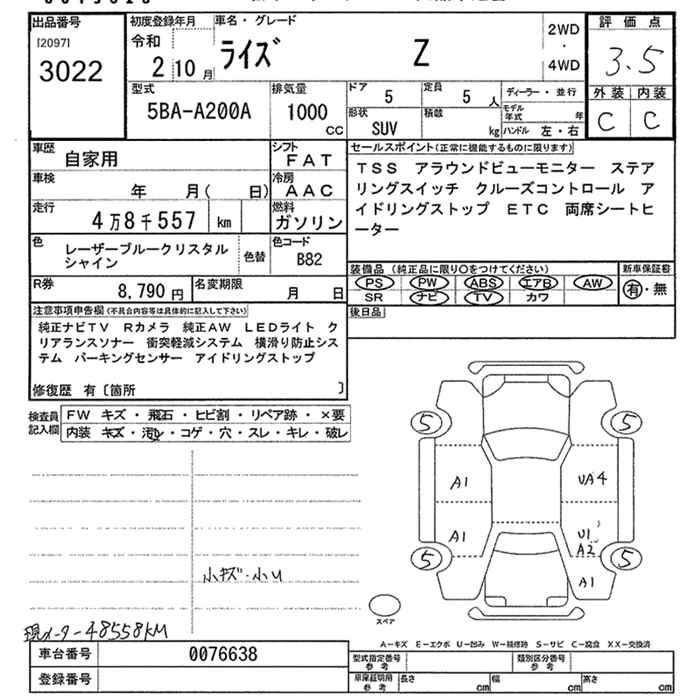 出品番号
[2097]
3022
初度登録年月
令和
2 10 月
車名・グレード
ライズ Z
2WD
・
4WD
評価点
3.5
外装 内装
C C
型式
5BA-A200A
排気量
1000
CC
ドア
5
定員
5 人
形状
SUV
積載
kg
ディーラー・並行
モデル年式 年
ハンドル 左・右
車歴
自家用
シフト
FAT
車検
年 月( 日)
冷房
AAC
走行
4万8千557 km
燃料
ガソリン
セールスポイント(正常に機能するものに限ります)
TSS アラウンドビューモニター ステア
リングスイッチ クルーズコントロール ア
イドリングストップ ETC 両席シートヒ
ーター
色
レーザーブルークリスタル
シャイン
色替
色コード
B82
R券
8,790 円
名変期限
月 日
装備品 (純正品に限り○をつけてください)
PS PW ABS エアB AW
SR ナビ TV カワ
新車保証書
有・無
後日品
注意事項申告欄(不具合内容等は具体的に記入して下さい)
純正ナビTV Rカメラ 純正AW LEDライト ク
リアランスソナー 衝突軽減システム 横滑り防止シス
テム パーキングセンサー アイドリングストップ
修復歴 有〔箇所 〕
検査員
記入欄
FW キズ・飛石・ヒビ割・リペア跡・×要
内装 キズ・汚レ・コゲ・穴・スレ・キレ・破レ
5 5
A1 UA4
A1 U1
A2
5 5
A1
小キズ・小U
スペア
現メーター48558KM
A-キズ E-エクボ U-凹み W-補修跡 S-サビ C-腐食 XX-交換済
車台番号
0076638
登録番号
型式指定番号
参考
類別区分番号
参考
車庫証明用
参考
長さ cm 幅 cm 高さ cm